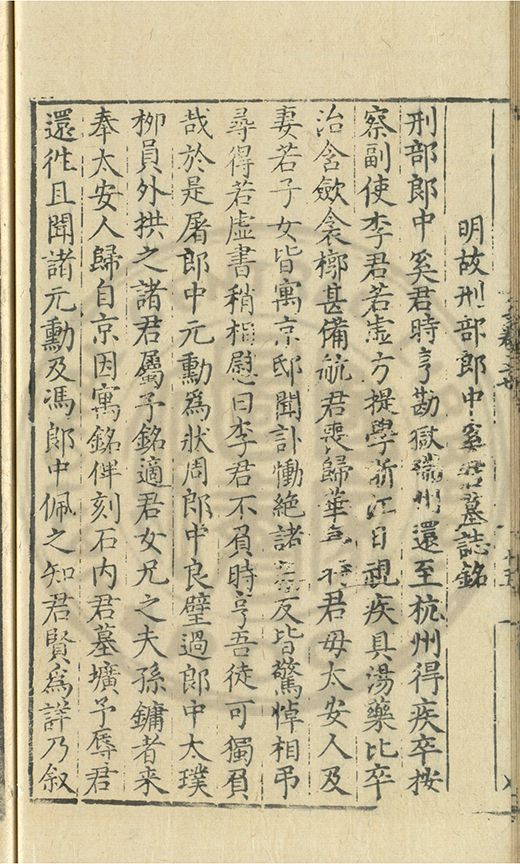 明故刑部郎中奚君墓誌銘
刑部郎中奚君時亨勘獄瑞州還至杭州得疾卒按
察副使李君若虛方提學浙江日視疾具湯藥比卒
治含歛衾槨甚備航君喪歸華亭君母太安人及
妻若子女皆寓京邸聞訃慟絕諸友皆驚悼相弔
尋得若虛書稍相慰曰李君不負時亨吾徒可獨負
哉於是屠郎中元勳為狀周郎中良璧過郎中太璞
柳員外拱之諸君屬予銘適君女兄之夫孫鏞者来
奉太安人歸自京因寓銘俾刻石內君墓壙予辱君
還徃且聞諸元勳及馮郎中佩之知君賢為詳乃叙